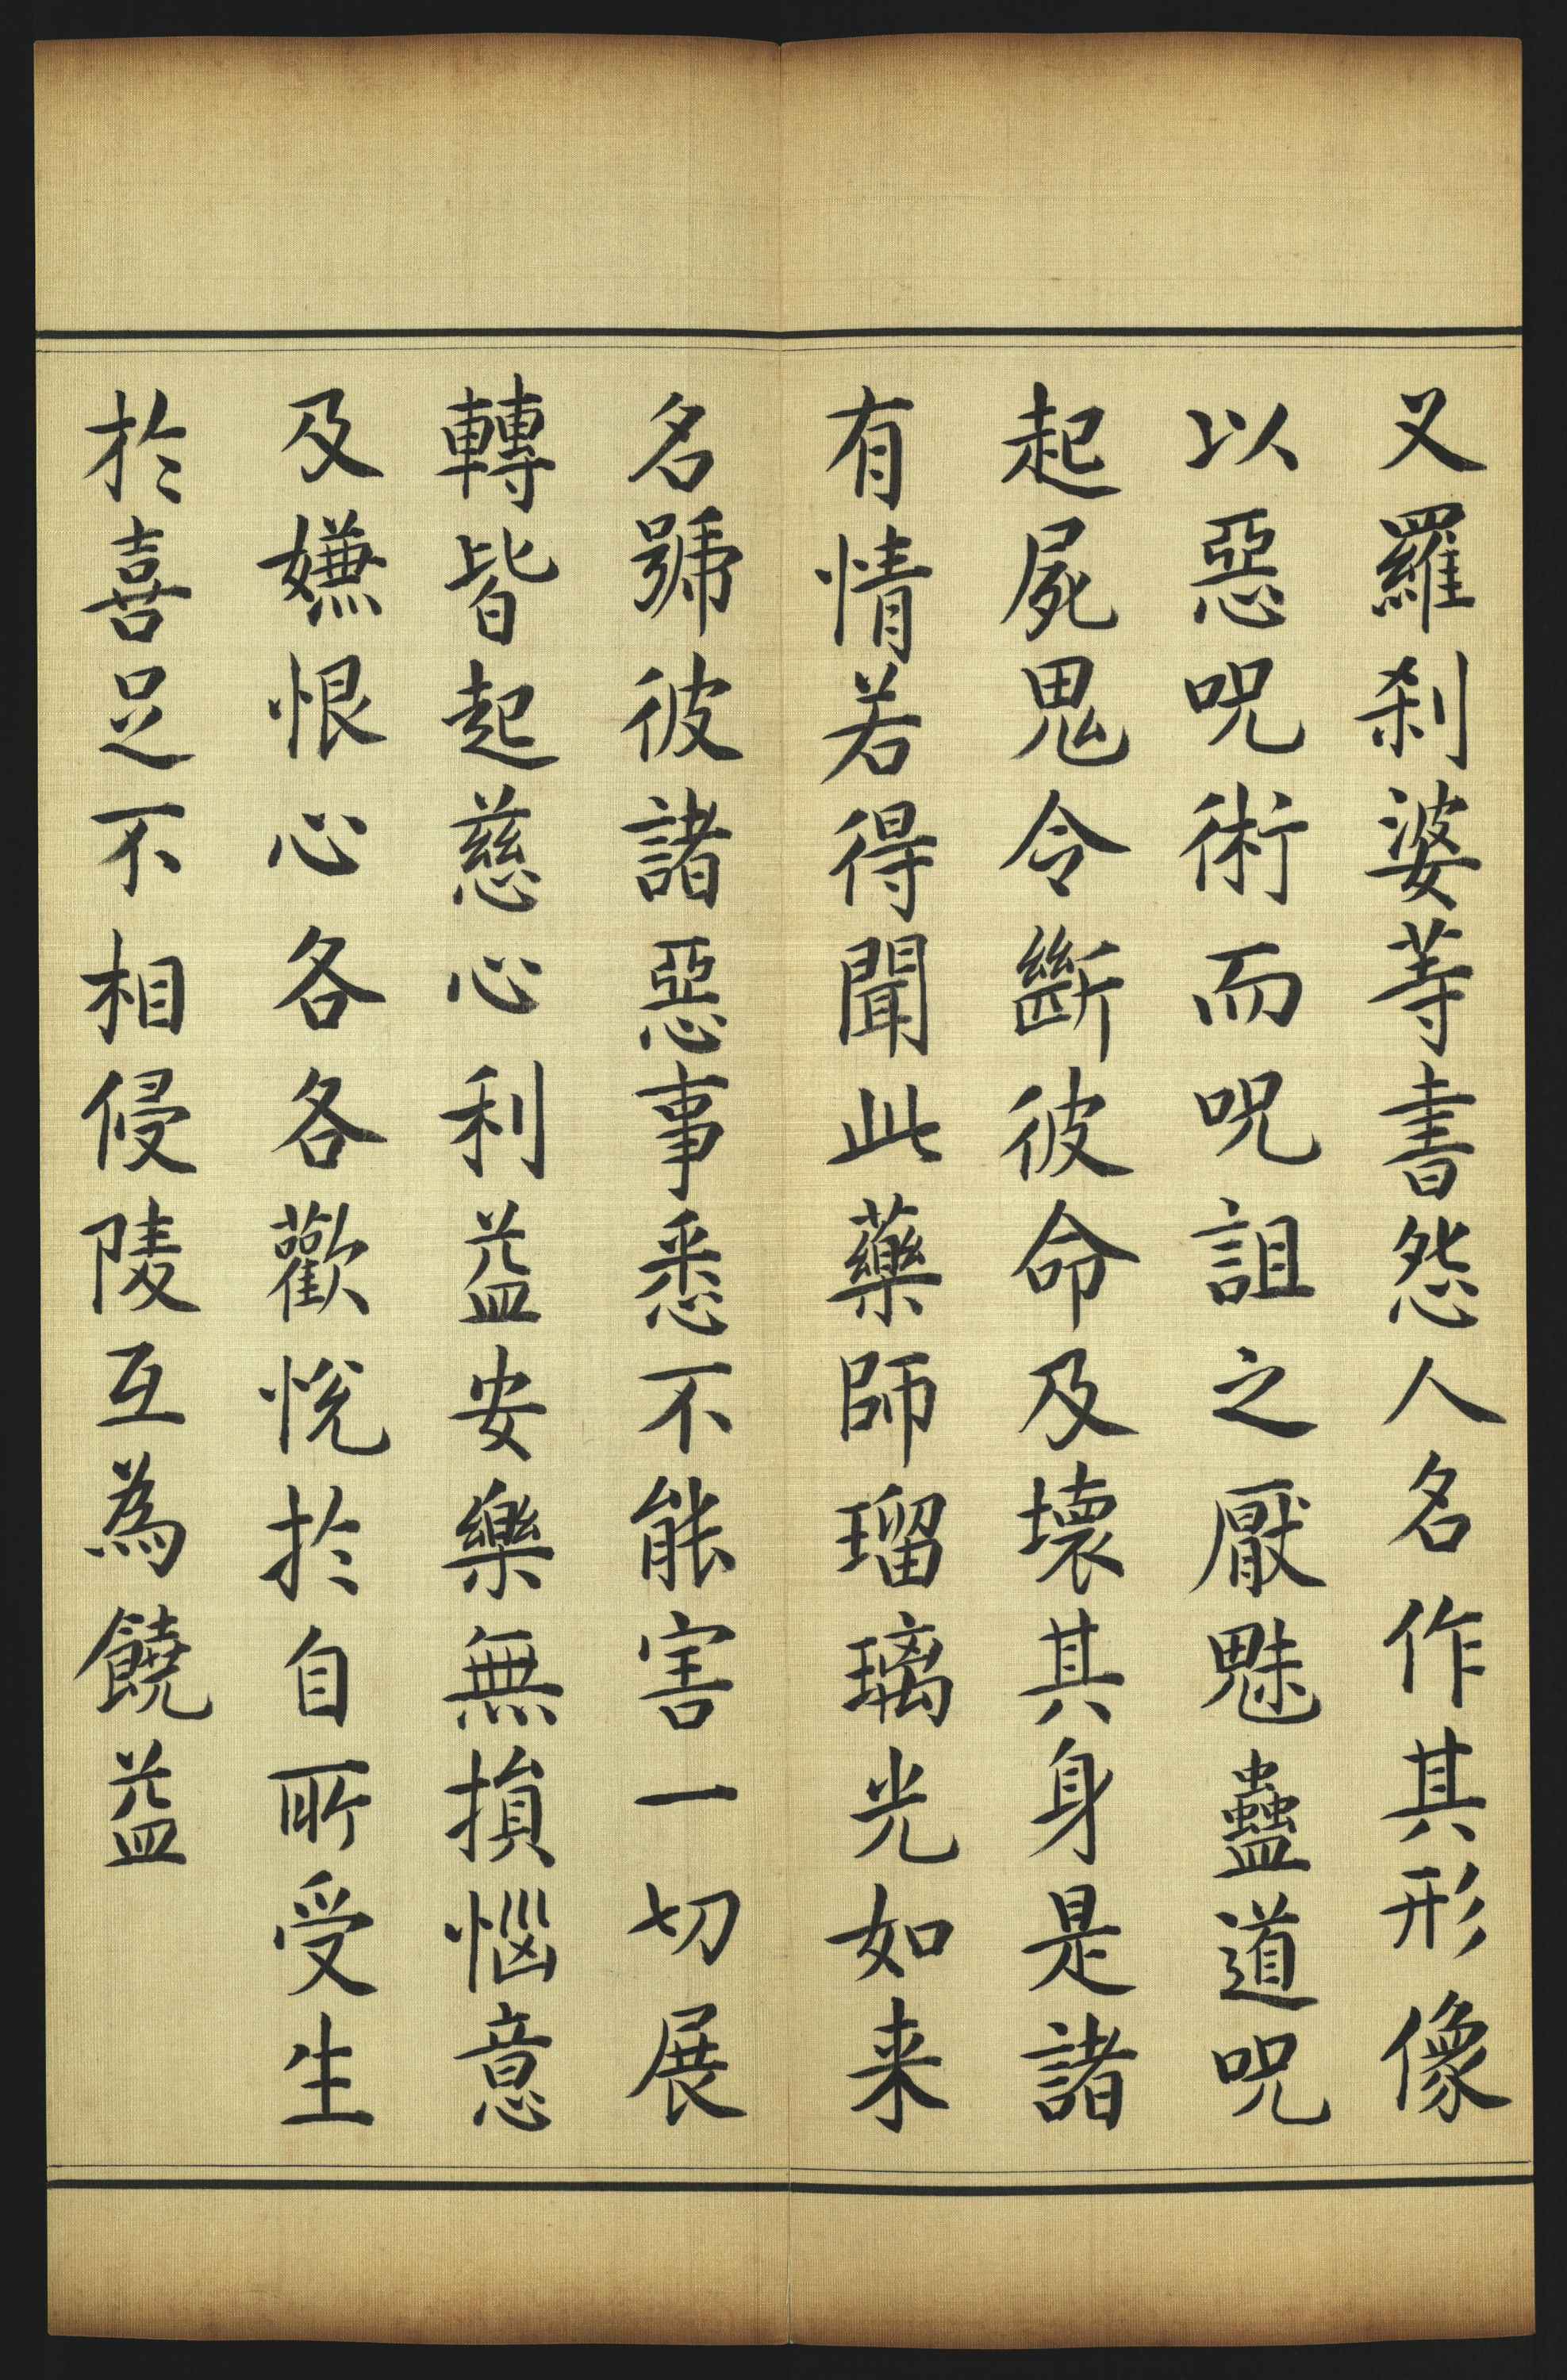 又羅刹婆等書怨人名作其形像
以惡呪術而呪詛之厭魅蠱道呪
起屍鬼令斷彼命及壞其身是諸
有情若得聞此藥師瑠璃光如来
名號彼諸惡事悉不能害一切展
轉皆起慈心利益安樂無損惱意
及嫌恨心各各歡悅於自所受生
於喜足不相侵陵互為饒益